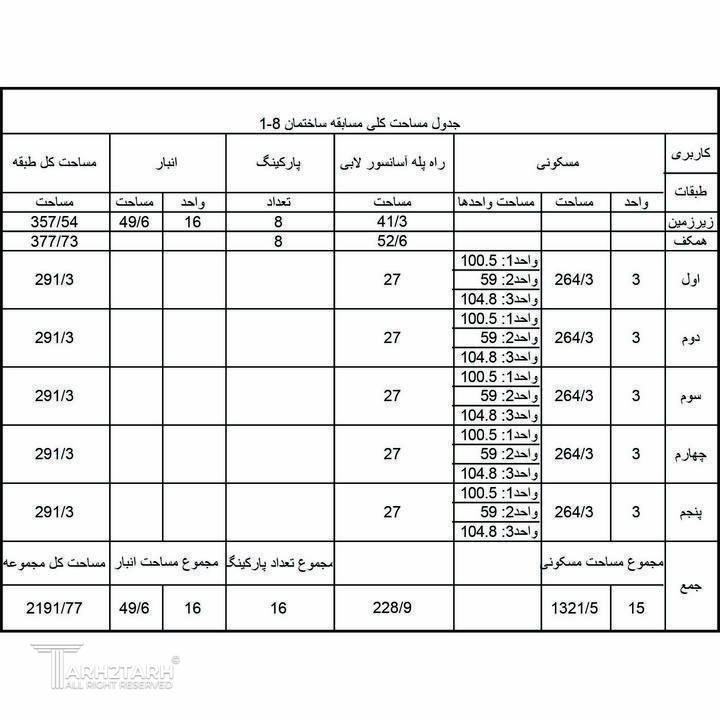 جدول مساحت کلی مسابقه ساختمان 8-1
کاربری مسکونی راه پله آسانسور لابی پارکینگ انبار مساحت کل طبقه
طبقات واحد مساحت مساحت واحدها مساحت تعداد واحد مساحت مساحت
زیرزمین 41/3 8 16 49/6 357/54
همکف 52/6 8 377/73
واحد1: 100.5
اول 3 264/3 واحد2: 59 27 291/3
واحد3: 104.8
واحد1: 100.5
دوم 3 264/3 واحد2: 59 27 291/3
واحد3: 104.8
واحد1: 100.5
سوم 3 264/3 واحد2: 59 27 291/3
واحد3: 104.8
واحد1: 100.5
چهارم 3 264/3 واحد2: 59 27 291/3
واحد3: 104.8
واحد1: 100.5
پنجم 3 264/3 واحد2: 59 27 291/3
واحد3: 104.8
جمع مجموع مساحت مسکونی مجموع تعداد پارکینگ مجموع مساحت انبار مساحت کل مجموعه
15 1321/5 228/9 16 16 49/6 2191/77
TARH2TARH©
ALL RIGHT RESERVED